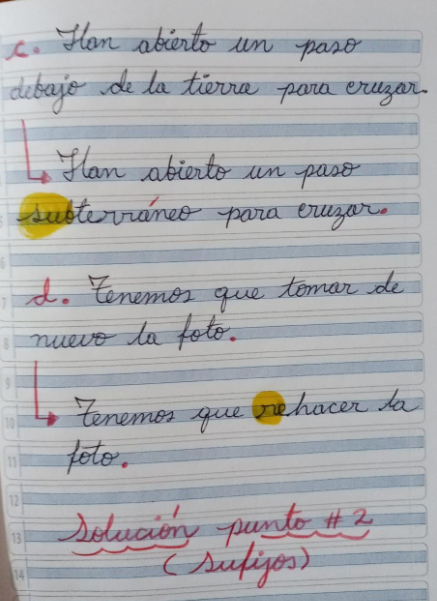 c. Han abierto un paso
debajo de la tierra para cruzar.
Han abierto un paso
subterráneo para cruzar.
d. Tenemos que tomar de
nuevo la foto.
Tenemos que rehacer la
foto.
Solución punto # 2
(sufijos)